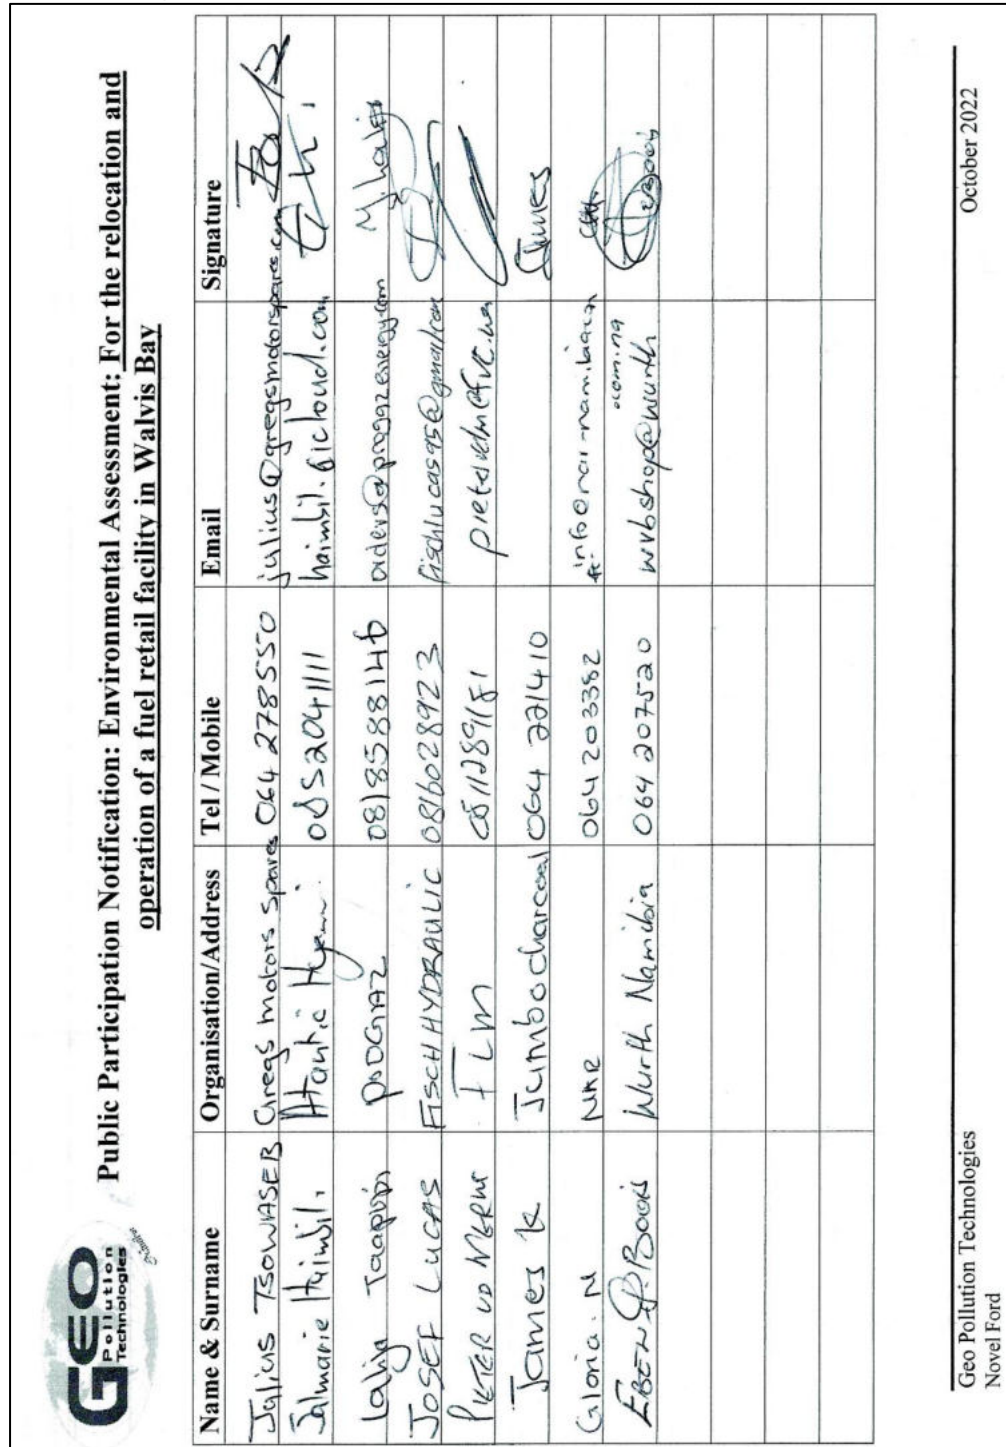 GEO
Pollution
Technologies
Public Participation Notification: Environmental Assessment: For the relocation and
operation of a fuel retail facility in Walvis Bay
Name & Surname Organisation/Address Tel / Mobile Email Signature
Julius TSOWASEB Gregs motors spares 064 278550 julius@gregsmotorspares.com
Jalmarie Haimbili Atlantic 0852041111 haimbili.@icloud.com
0818588146
JOSEF LUCAS FISCH HYDRAULIC 0816028923 fischlucas95@gmail.com
PIETER VD MERWE FLM 0811289181
James K Jumbo charcoal 064 221410 James
Gloria. N NAR 064 203382
EBEN Boois Wurth Namibia 064 207520 wvbshop@wurth .com.na
Geo Pollution Technologies October 2022
Novel Ford